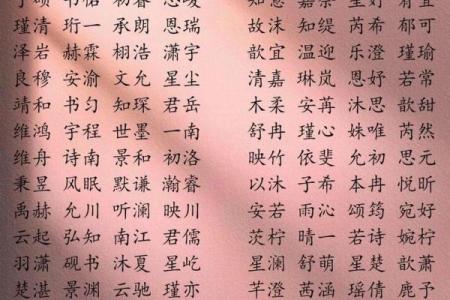 瑾清 珩一 承朗 恩瑞 故沫 知缇 芮希 郁可
泽岩 赫霖 栩浩 潇宇 歆宜 温迎 乐澄 瑾瑜
良穆 安渝 文允 星尘 清嘉 琳岚 恩妤 若常
靖和 书幻 知琛 君岳 木柔 安苒 沐思 歆甜
维鸿 宇程 世墨 一南 舒冉 瑾心 姝唯 芮然
维舟 诗南 景和 初洛 映竹 依斐 允初 思元
秉昱 风眠 默谦 瀚睿 以沐 子希 本冉 悦昕
禹赫 允川 听澜 映川 安若 雨沁 颂筠 宛好
云起 弘知 南江 君儒 茨柠 晴一 若诗 婉柠
羽潇 砚书 沐夏 星屹 星澜 舒萌 星楚 歆萧
楚湛 景渊 云驰 瑾亦 芊澄 茜涵 瑶倩 鹿予